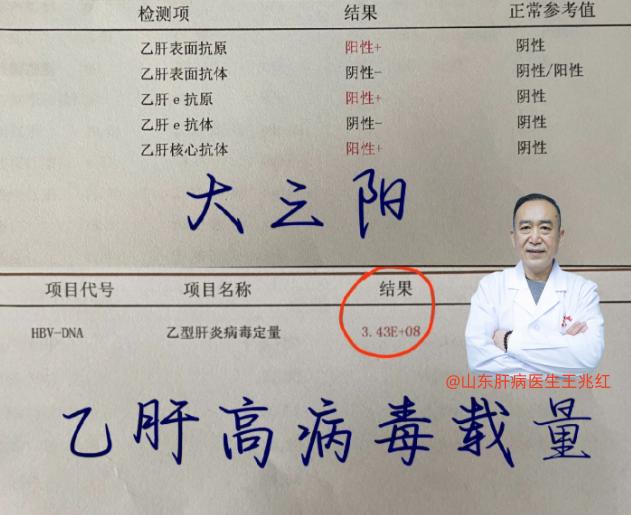 检测项 结果 正常参考值
乙肝表面抗原 阳性+ 阴性
乙肝表面抗体 阴性- 阴性/阳性
乙肝e抗原 阳性+ 阴性
乙肝e抗体 阴性- 阴性
乙肝核心抗体 阳性+ 阴性
大三阳
项目代号 项目名称 结果
HBV-DNA 乙型肝炎病毒定量 3.43E+08
@山东肝病医生王兆红
乙肝高病毒载量